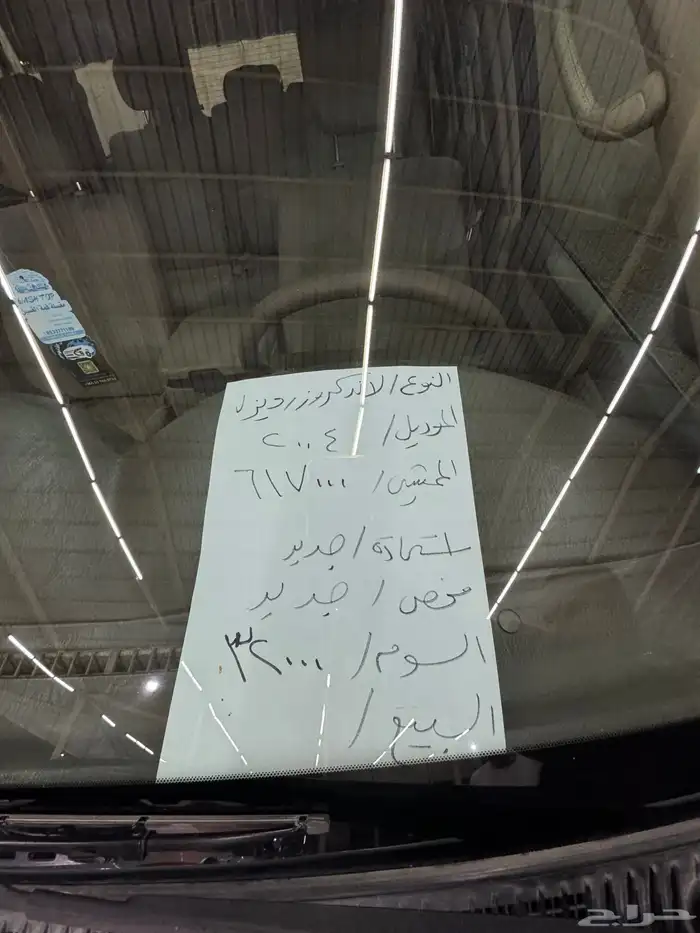 النوع / لاندكروزر ديزل
الموديل / ٢٠٠٤
الممشى / ٦١٧٠٠٠
استمارة / جديد
فحص / جديد
السوم / ٣٢٠٠٠
البيع /
WASH TOP
حراج